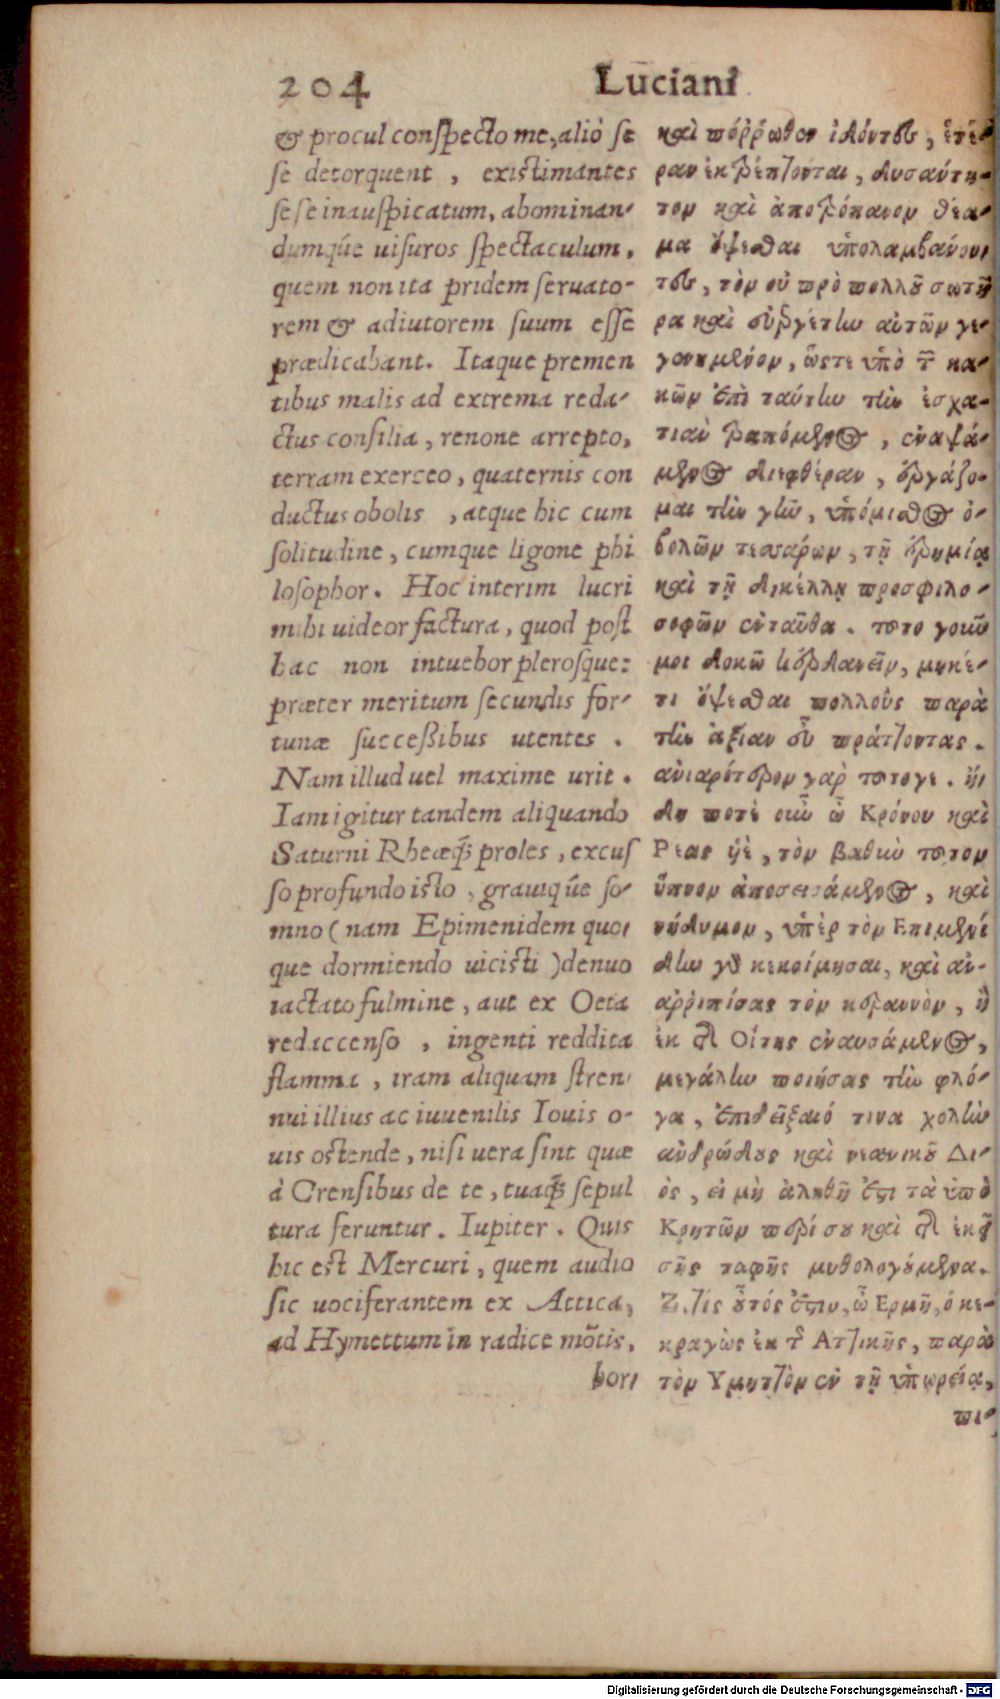 204 Luciani
& procul conspecto me, aliò se
se detorquent , existimantes
sese inauspicatum, abominan-
dumq́ue uisuros spectaculum,
quem non ita pridem seruato-
rem & adiutorem suum esse
prædicabant. Itaque premen
tibus malis ad extrema reda-
ctus consilia, renone arrepto,
terram exerceo, quaternis con
ductus obolis , atque hic cum
solitudine, cumque ligone phi
losophor. Hoc interim lucri
mihi uideor factura, quod post
hac non intuebor plerosque:
præter meritum secundis for-
tunæ successibus utentes .
Nam illud uel maxime urit .
Iam igitur tandem aliquando
Saturni Rheæq́; proles, excus
so profundo isto , grauiq́ue so-
mno ( nam Epimenidem quo-
que dormiendo uicisti ) denuo
iactato fulmine, aut ex Oeta
redaccenso , ingenti reddita
flamma, iram aliquam stren-
nui illius ac iuuenilis Iouis o-
uis ostende, nisi uera sint quæ
à Crensibus de te, tuaq́; sepul
tura feruntur. Iupiter. Quis
hic est Mercuri, quem audio
sic uociferantem ex Attica,
ad Hymettum in radice mõtis,
hor-
καὶ πόῤῥωθεν ἰδόντες, ἑτέ-
ραν ἐκτρέπονται, δυσάντη-
τον καὶ ἀποτρόπαιον θέα-
μα ὄψεσθαι ὑπολαμβάνον-
τες, τὸν οὐ πρὸ πολλοῦ σωτῆ
ρα καὶ εὐεργέτην αὐτῶν γε-
γενημένον, ὥστε ὑπὸ τῶν κα-
κῶν ἐπὶ ταύτην τὴν ἐσχα-
τιὰν τραπόμενος, ἐναψά-
μενος διφθέραν, ἐργάζο-
μαι τὴν γῆν, ὑπόμισθος ὀ-
βολῶν τεσσάρων, τῇ ἐρημίᾳ
καὶ τῇ δικέλλῃ προσφιλο-
σοφῶν ἐνταῦθα. τοῦτο γοῦν
μοι δοκῶ κερδανεῖν, μηκέ-
τι ὄψεσθαι πολλοὺς παρὰ
τὴν ἀξίαν εὖ πράττοντας.
ἀνιαρότερον γὰρ τοῦτογε. ἤ-
δη ποτὲ οὖν ὦ Κρόνου καὶ
Ρέας υἱὲ, τὸν βαθὺν τοῦτον
ὕπνον ἀποσεισάμενος, καὶ
νήδυμον, ὑπὲρ τὸν Επιμενί
δην γὰρ κεκοίμησαι, καὶ ἀν-
αῤῥιπίσας τὸν κεραυνὸν, ἢ
ἐκ τῆς Οἴτης ἐναυσάμενος,
μεγάλην ποιήσας τὴν φλό-
γα, ἐπιδείξαιό τινα χολὴν
ἀνδρώδους καὶ νεανικοῦ Δι-
ὸς, εἰ μὴ ἀληθῆ ἐστι τὰ ὑπὸ
Κρητῶν περί σου καὶ τῆς ἐκεῖ
σῆς ταφῆς μυθολογούμενα.
Ζ. Τίς οὗτός ἐστιν, ὦ Ερμῆ, ὁ κε-
κραγὼς ἐκ τῆς Ἀττικῆς, παρὰ
τὸν Υμηττὸν ἐν τῇ ὑπωρείᾳ,
πι-
Digitalisierung gefördert durch die Deutsche Forschungsgemeinschaft - DFG